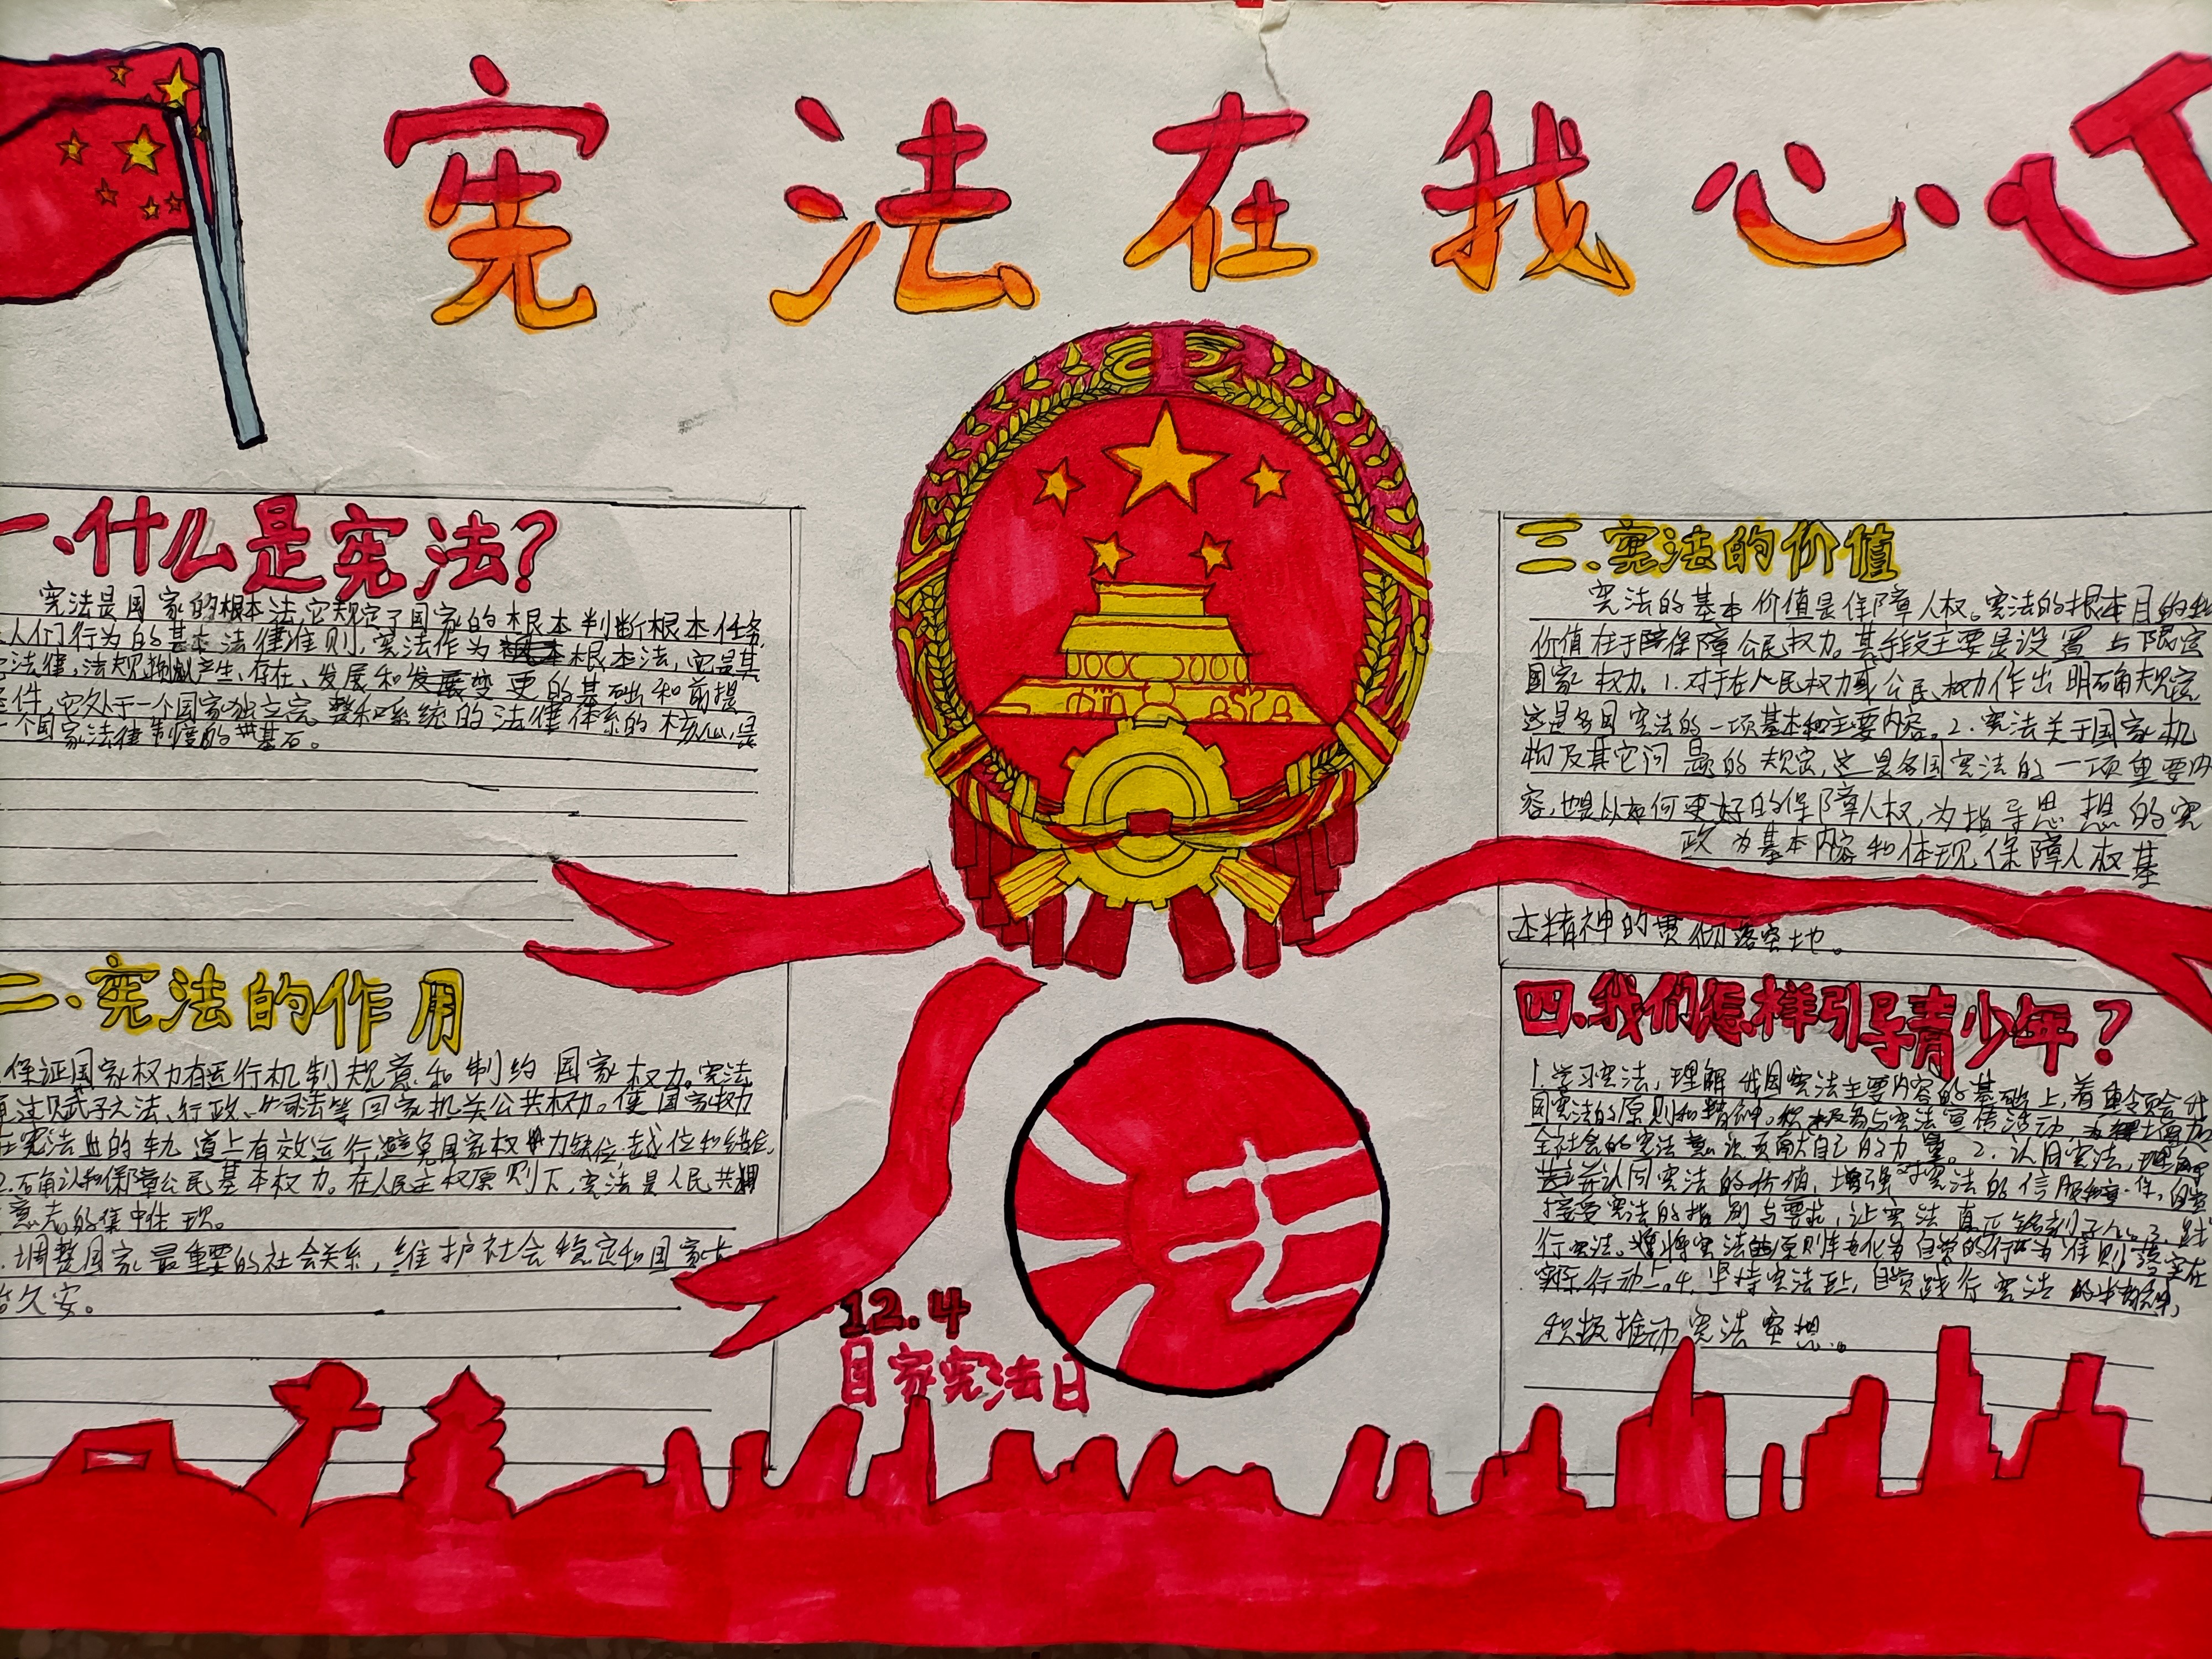 宪法在我心
一、什么是宪法?
宪法是国家的根本法,它规定了国家的根本判断根本任务
人们行为的基本法律准则,宪法作为根本法,它是其
法律,法规产生、存在、发展和发展变更的基础和前提
件,它处于一个国家独立完整和系统的法律体系的核心,是
个国家法律制度的基石。
二、宪法的作用
保证国家权力有运行机制规意和制约国家权力。宪法
立法、行政、司法等国家机关公共权力。使国家权力
在宪法的轨道上有效运行,避免国家权力缺位、越位和错位,
2.确认和保障公民基本权力。在人民主权原则下,宪法是人民共
意志的集中体现。
调整国家最重要的社会关系,维护社会稳定和国家长
久安。
三、宪法的价值
宪法的基本价值是保障人权。宪法的根本目的
价值在于保障公民权力。其手段主要是设置与限定
国家权力。1.对于在人民权力或公民权力作出明确规定
这是各国宪法的一项基本和主要内容。2.宪法关于国家机
构及其它问题的规定,这是各国宪法的一项重要内
容,也是以如何更好的保障人权,为指导思想的宪
政为基本内容和体现保障人权基
本精神的贯彻落实地。
四、我们怎样引导青少年?
1.学习宪法,理解我国宪法主要内容的基础上,着重领会我
国宪法的原则和精神。积极参与宪法宣传活动,为增加
全社会的宪法意识贡献自己的力量。2.认同宪法,理解
并认同宪法的价值,增强对宪法的信服,自觉
接受宪法的指引与要求,让宪法真正铭刻于心。3.践
行宪法。将宪法的原则转化为自觉的行为准则落实在
实际行动上。4.坚持宪法至上,自觉践行宪法
积极推动宪法实
12.4
国家宪法日
法